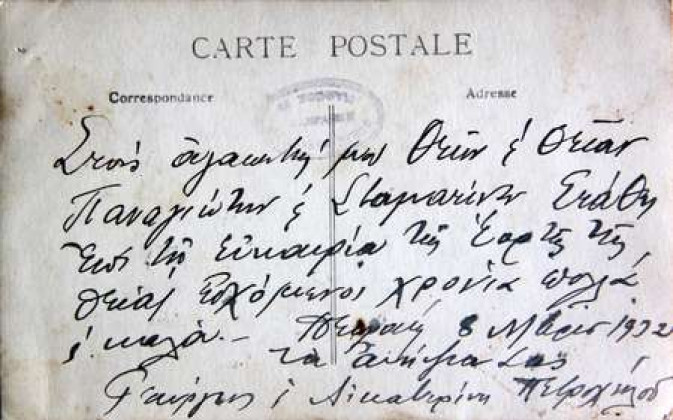 CARTE POSTALE
Correspondance
Adresse
Στούς ἀγαπητούς μου Θεῖον & Θείαν
Παναγιώτην & Σταματίναν Στάθη
Ἐπί τῇ εὐκαιρία τῆς ἑορτῆς τῆς
θείας εὐχόμενοι χρόνια πολλά
& καλά.— Πειραιεύς 8 Μαρτίου 1932
τα ἀνήψια σας
Γεώργιος & Αἰκατερίνη